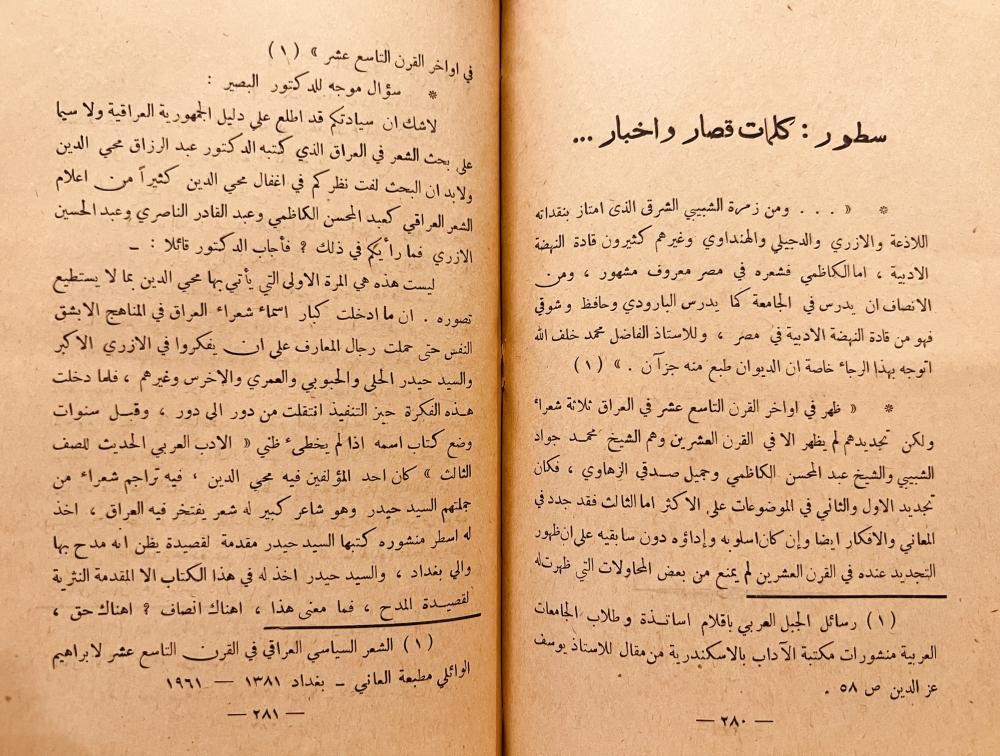 سطور : كلمات قصار واخبار ...
* « . . . ومن زمرة الشبيبي الشرقي الذى امتاز بنقداته
اللاذعة والازري والدجيلي والهنداوي وغيرهم كثيرون قادة النهضة
الادبية ، اما الكاظمي فشعره في مصر معروف مشهور ، ومن
الانصاف ان يدرس في الجامعة كما يدرس البارودي وحافظ وشوقي
فهو من قادة النهضة الادبية في مصر ، وللاستاذ الفاضل محمد خلف الله
اتوجه بهذا الرجاء خاصة ان الديوان طبع منه جزآن . » (١)
* « ظهر في اواخر القرن التاسع عشر في العراق ثلاثة شعراء
ولكن تجديدهم لم يظهر الا في القرن العشرين وهم الشيخ محمد جواد
الشبيبي والشيخ عبد المحسن الكاظمي وجميل صدقي الزهاوي ، فكان
تجديد الاول والثاني في الموضوعات على الاكثر اما الثالث فقد جدد في
المعاني والافكار ايضا وإن كان اسلوبه وإداؤه دون سابقيه على ان ظهور
التجديد عنده في القرن العشرين لم يمنع من بعض المحاولات التي ظهرت له
(١) رسائل الجبل العربي باقلام اساتذة وطلاب الجامعات
العربية منشورات مكتبة الآداب بالاسكندرية من مقال للاستاذ يوسف
عز الدين ص ٥٨ .
— ٢٨٠ —
في اواخر القرن التاسع عشر » (١)
* سؤال موجه للدكتور البصير :
لاشك ان سيادتكم قد اطلع على دليل الجمهورية العراقية ولا سيما
على بحث الشعر في العراق الذي كتبه الدكتور عبد الرزاق محي الدين
ولابد ان البحث لفت نظركم في اغفال محي الدين كثيراً من اعلام
الشعر العراقي كعبد المحسن الكاظمي وعبد القادر الناصري وعبد الحسين
الازري فما رأيكم في ذلك ? فأجاب الدكتور قائلا : —
ليست هذه هي المرة الاولى التي يأتي بها محي الدين بما لا يستطيع
تصوره . ان ما ادخلت كبار اسماء شعراء العراق في المناهج الابشق
النفس حتى حملت رجال المعارف على ان يفكروا في الازري الاكبر
والسيد حيدر الحلي والحبوبي والعمري والاخرس وغيرهم ، فلما دخلت
هذه الفكرة حيز التنفيذ انتقلت من دور الى دور ، وقبل سنوات
وضع كتاب اسمه اذا لم يخطىء ظني « الادب العربي الحديث للصف
الثالث » كان احد المؤلفين فيه محي الدين ، فيه تراجم شعراء من
جملتهم السيد حيدر وهو شاعر كبير له شعر يفتخر فيه العراق ، اخذ
له اسطر منشوره كتبها السيد حيدر مقدمة لقصيدة يظن انه مدح بها
والي بغداد ، والسيد حيدر اخذ له في هذا الكتاب الا المقدمة النثرية
لقصيدة المدح ، فما معنى هذا ، اهناك انصاف ? اهناك حق ،
(١) الشعر السياسي العراقي في القرن التاسع عشر لابراهيم
الوائلي مطبعة العاني — بغداد ١٣٨١ — ١٩٦١
— ٢٨١ —